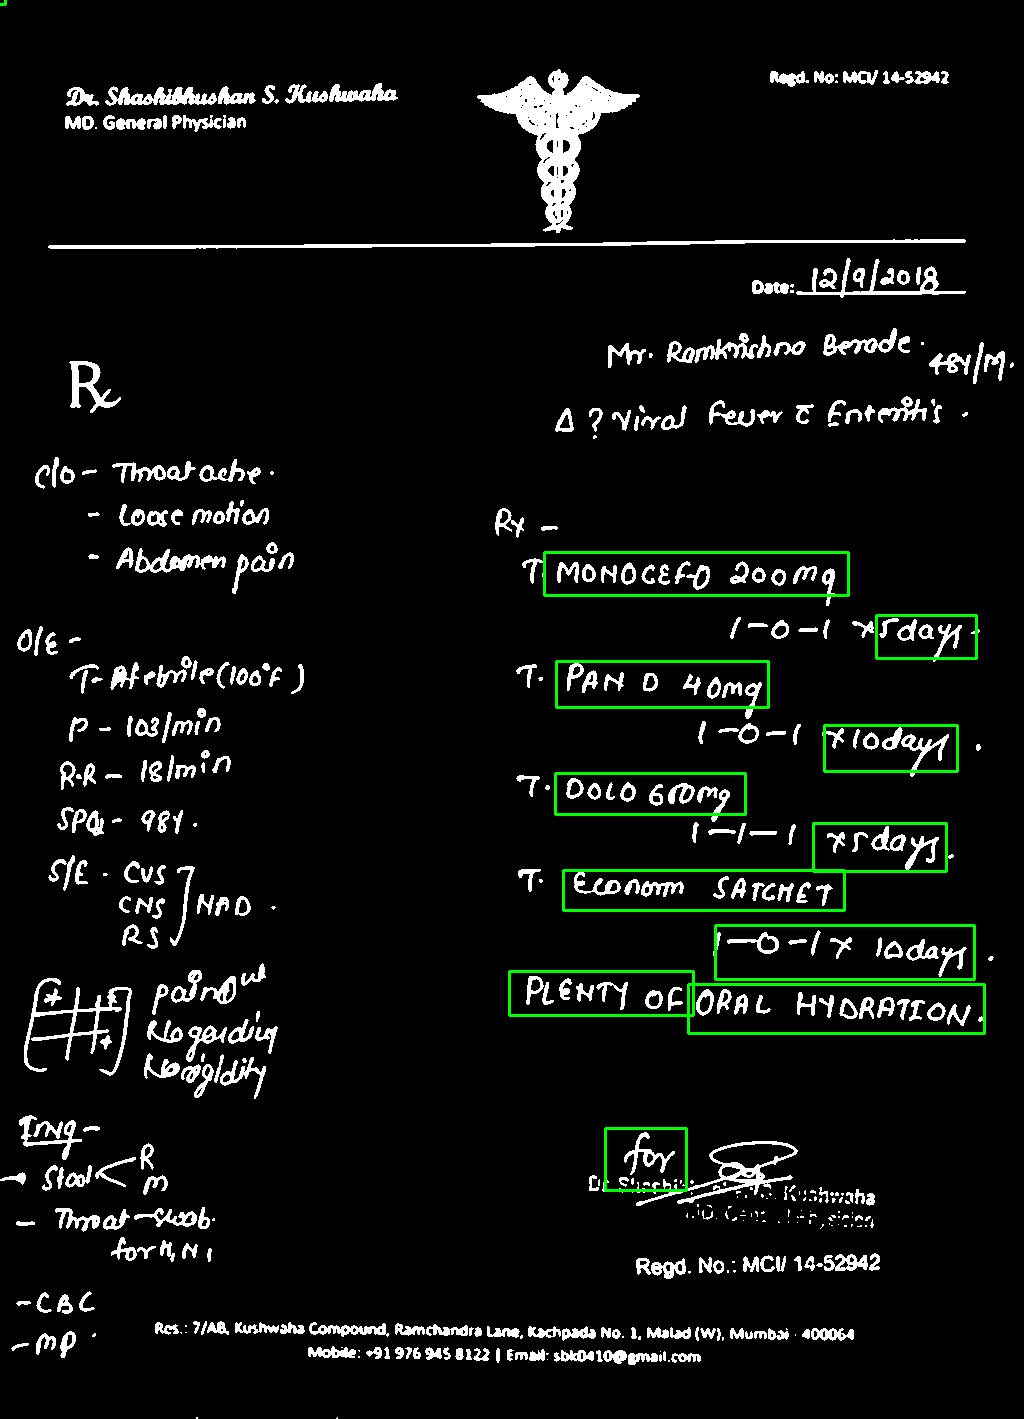 Dr. Shashibhushan S. Kushwaha
MD. General Physician
Regd. No: MCI/ 14-52942
Date: 12/9/2018
Mr. Ramkrishna Berade. 48Y/M.
Δ ? Viral Fever c̄ Enteritis.
Rx
C/O - Throat ache.
- Loose motion
- Abdomen pain
O/E -
T- Afebrile (100°F)
P - 103/min
R.R - 18/min
SPO2 - 98%.
S/E - CVS
CNS
RS
NAD.
pain
No garding
No rigidity
Invg -
Stool R
M
- Throat-swab.
for H1N1
- CBC
- MP
Rx -
T. MONOCEF-O 200mg
1-0-1 x 5 days.
T. PAN D 40mg
1-0-1 x 10 days.
T. DOLO 650mg
1-1-1 x 5 days.
T. Econorm SATCHET
1-0-1 x 10 days.
PLENTY OF ORAL HYDRATION.
for
Dr. Shashibhushan S. Kushwaha
MD. General Physician
Regd. No.: MCI/ 14-52942
Res.: 7/AB, Kushwaha Compound, Ramchandra Lane, Kachpada No. 1, Malad (W), Mumbai - 400064
Mobile: +91 976 945 8122 | Email: sbk0410@gmail.com